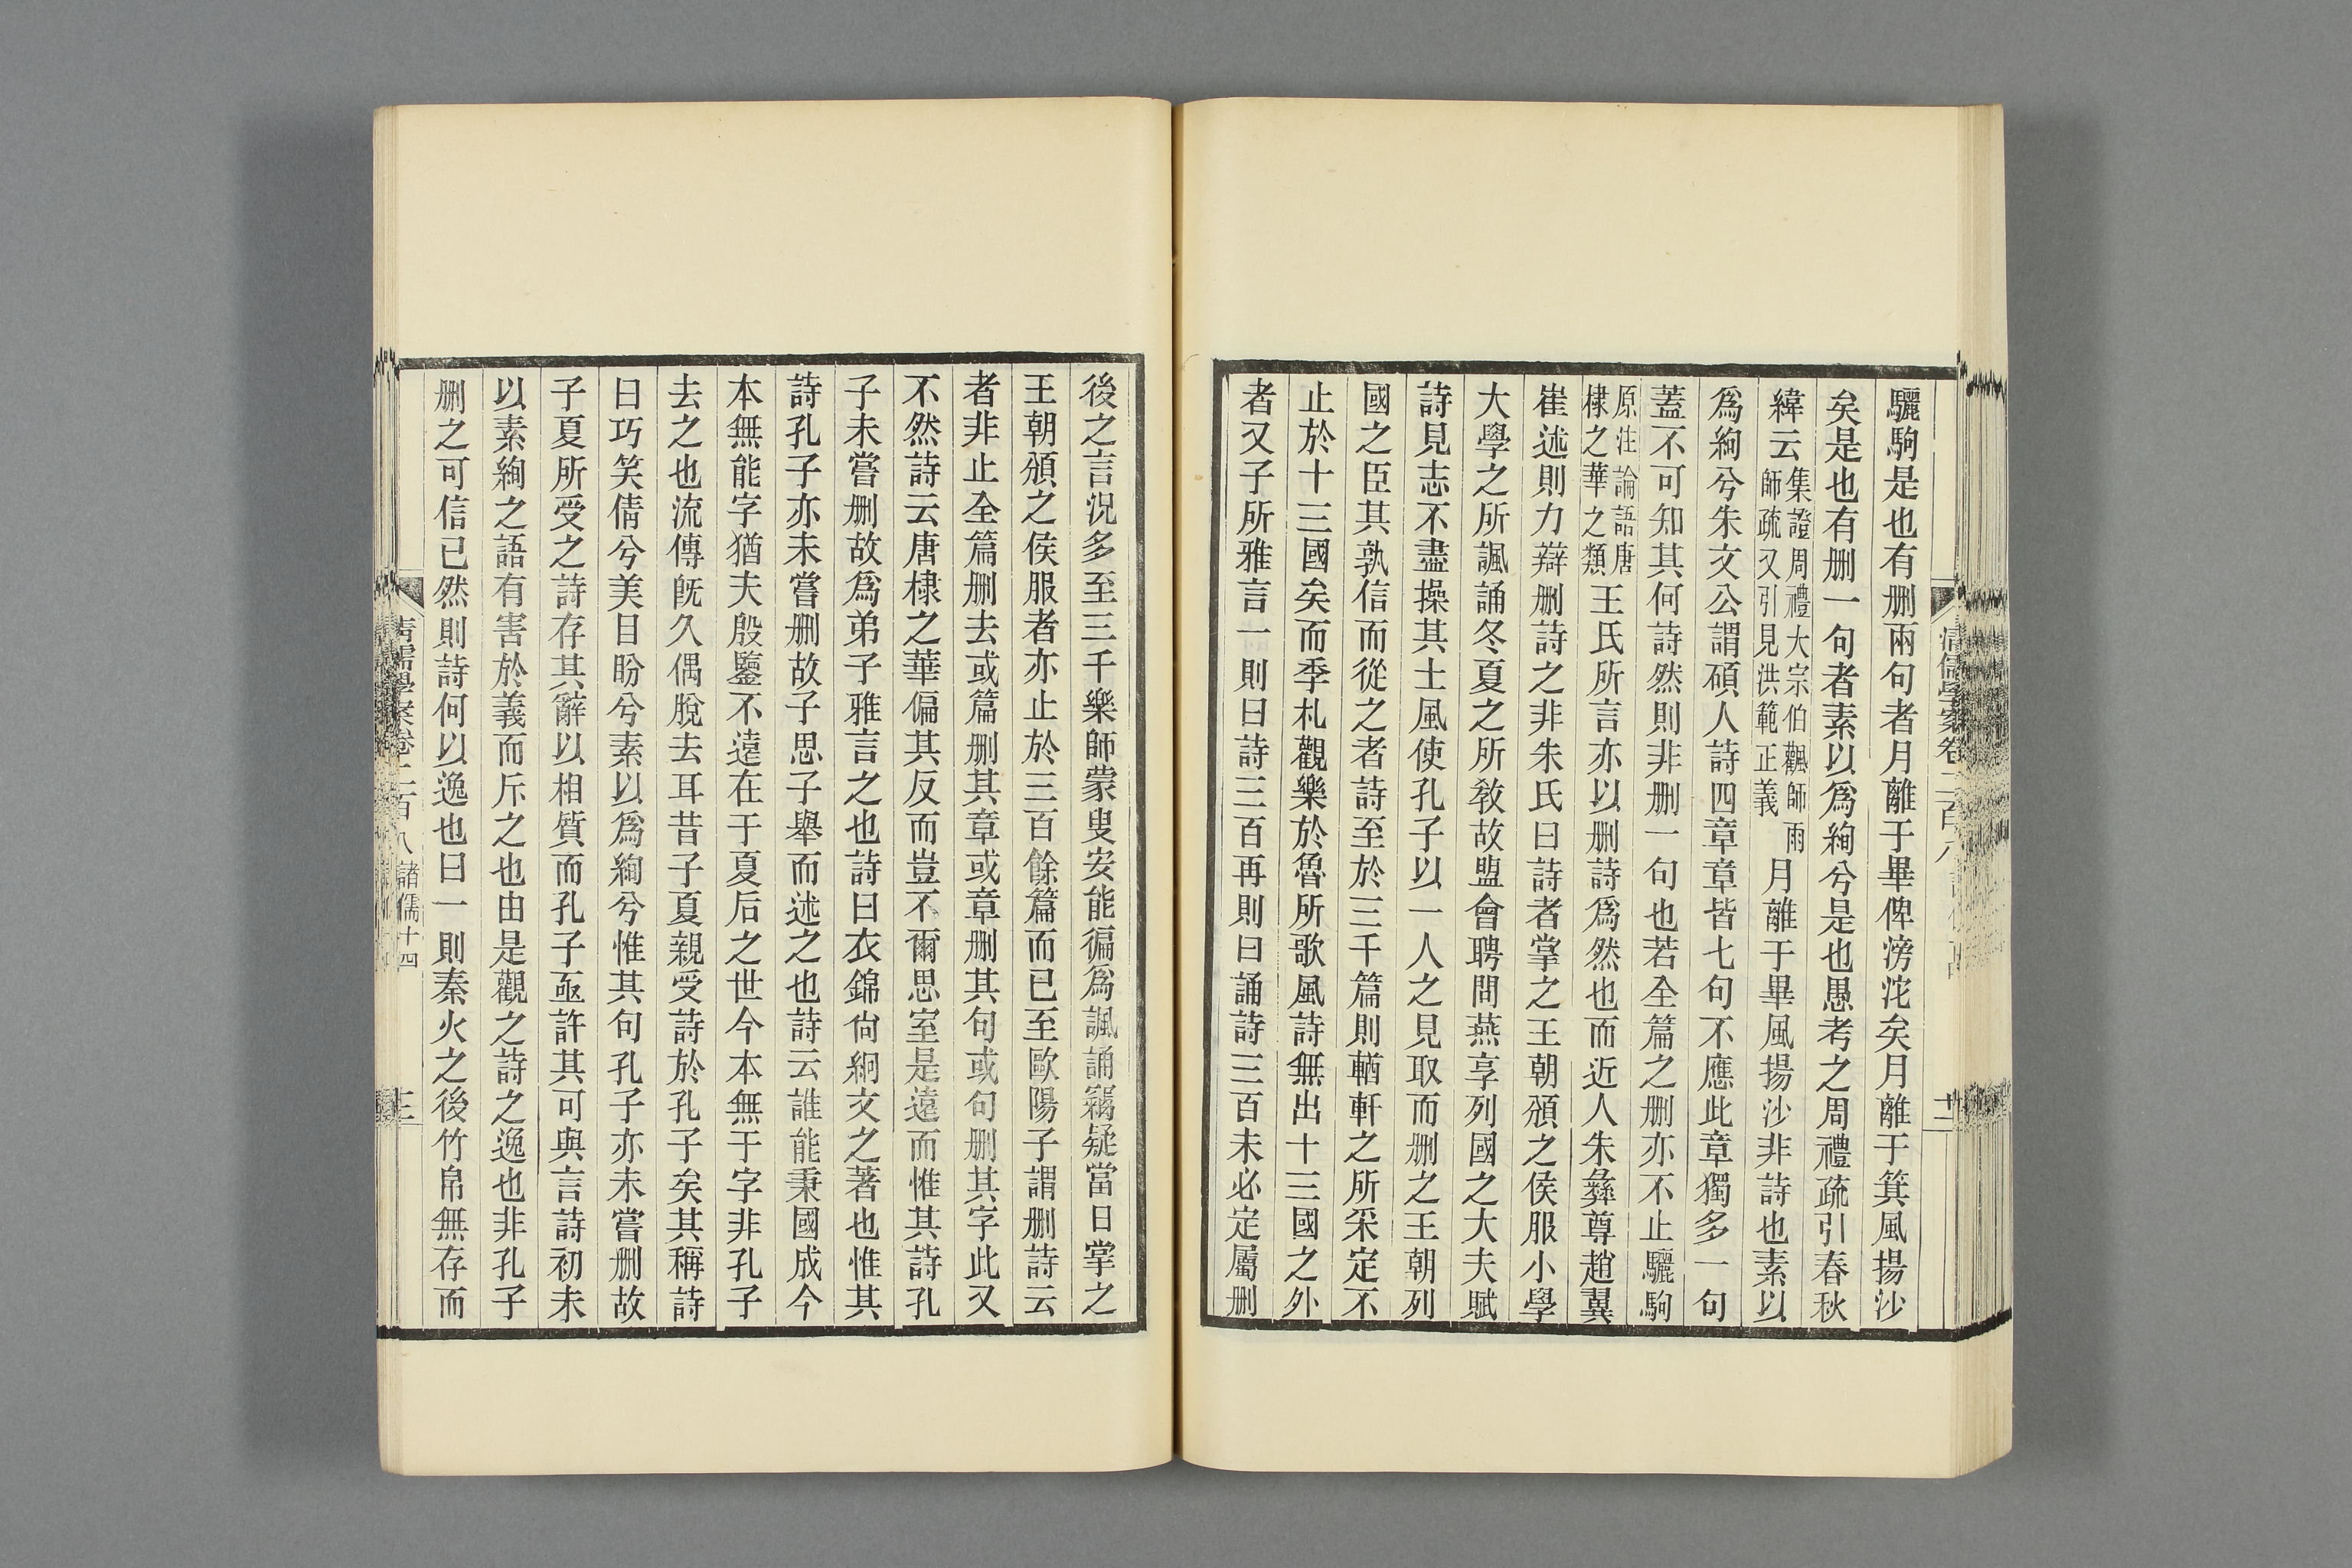 驪駒是也有刪兩句者月離于畢俾滂沱矣月離于箕風揚沙
矣是也有刪一句者素以爲絢兮是也愚考之周禮疏引春秋
緯云集證周禮大宗伯䬑師雨師疏又引見洪範正義月離于畢風揚沙非詩也素以
爲絢兮朱文公謂碩人詩四章章皆七句不應此章獨多一句
蓋不可知其何詩然則非刪一句也若全篇之刪亦不止驪駒
原注論語唐棣之華之類王氏所言亦以刪詩爲然也而近人朱彝尊趙翼
崔述則力辯刪詩之非朱氏曰詩者掌之王朝頒之侯服小學
大學之所諷誦冬夏之所敎故盟會聘問燕享列國之大夫賦
詩見志不盡操其土風使孔子以一人之見取而刪之王朝列
國之臣其孰信而從之者詩至於三千篇則輶軒之所采定不
止於十三國矣而季札觀樂於魯所歌風詩無出十三國之外
者又子所雅言一則曰詩三百再則曰誦詩三百未必定屬刪
後之言況多至三千樂師蒙叟安能徧爲諷誦竊疑當日掌之
王朝頒之侯服者亦止於三百餘篇而已至歐陽子謂刪詩云
者非止全篇刪去或篇刪其章或章刪其句或句刪其字此又
不然詩云唐棣之華偏其反而豈不爾思室是遠而惟其詩孔
子未嘗刪故爲弟子雅言之也詩曰衣錦尙絅文之著也惟其
詩孔子亦未嘗刪故子思子舉而述之也詩云誰能秉國成今
本無能字猶夫殷鑒不遠在于夏后之世今本無于字非孔子
去之也流傳旣久偶脫去耳昔子夏親受詩於孔子矣其稱詩
曰巧笑倩兮美目盼兮素以爲絢兮惟其句孔子亦未嘗刪故
子夏所受之詩存其辭以相質而孔子亟許其可與言詩初未
以素絢之語有害於義而斥之也由是觀之詩之逸也非孔子
刪之可信已然則詩何以逸也曰一則秦火之後竹帛無存而
清儒學案卷二百八 諸儒十四